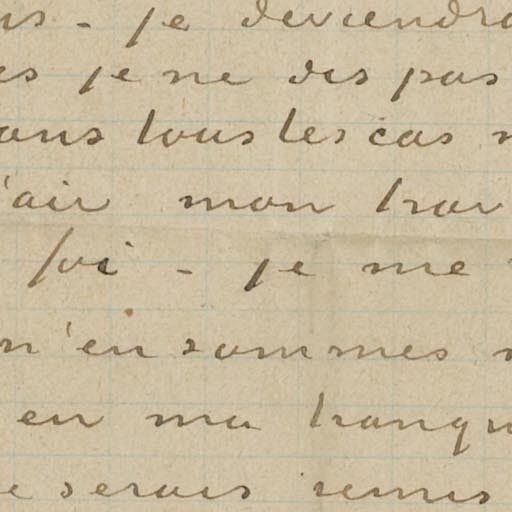 je deviendra
je ne dis pas
ans tous les cas
'air mon trav
foi - je me
n'en sommes
en ma tranqu
e serais remis